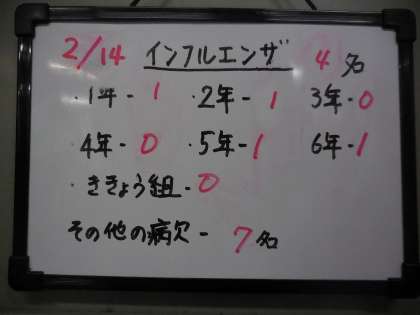 2/14 インフルエンザ 4名
・1年-1 ・2年-1 3年-0
・4年-0 ・5年-1 6年-1
・ききょう組-0
その他の病欠- 7名